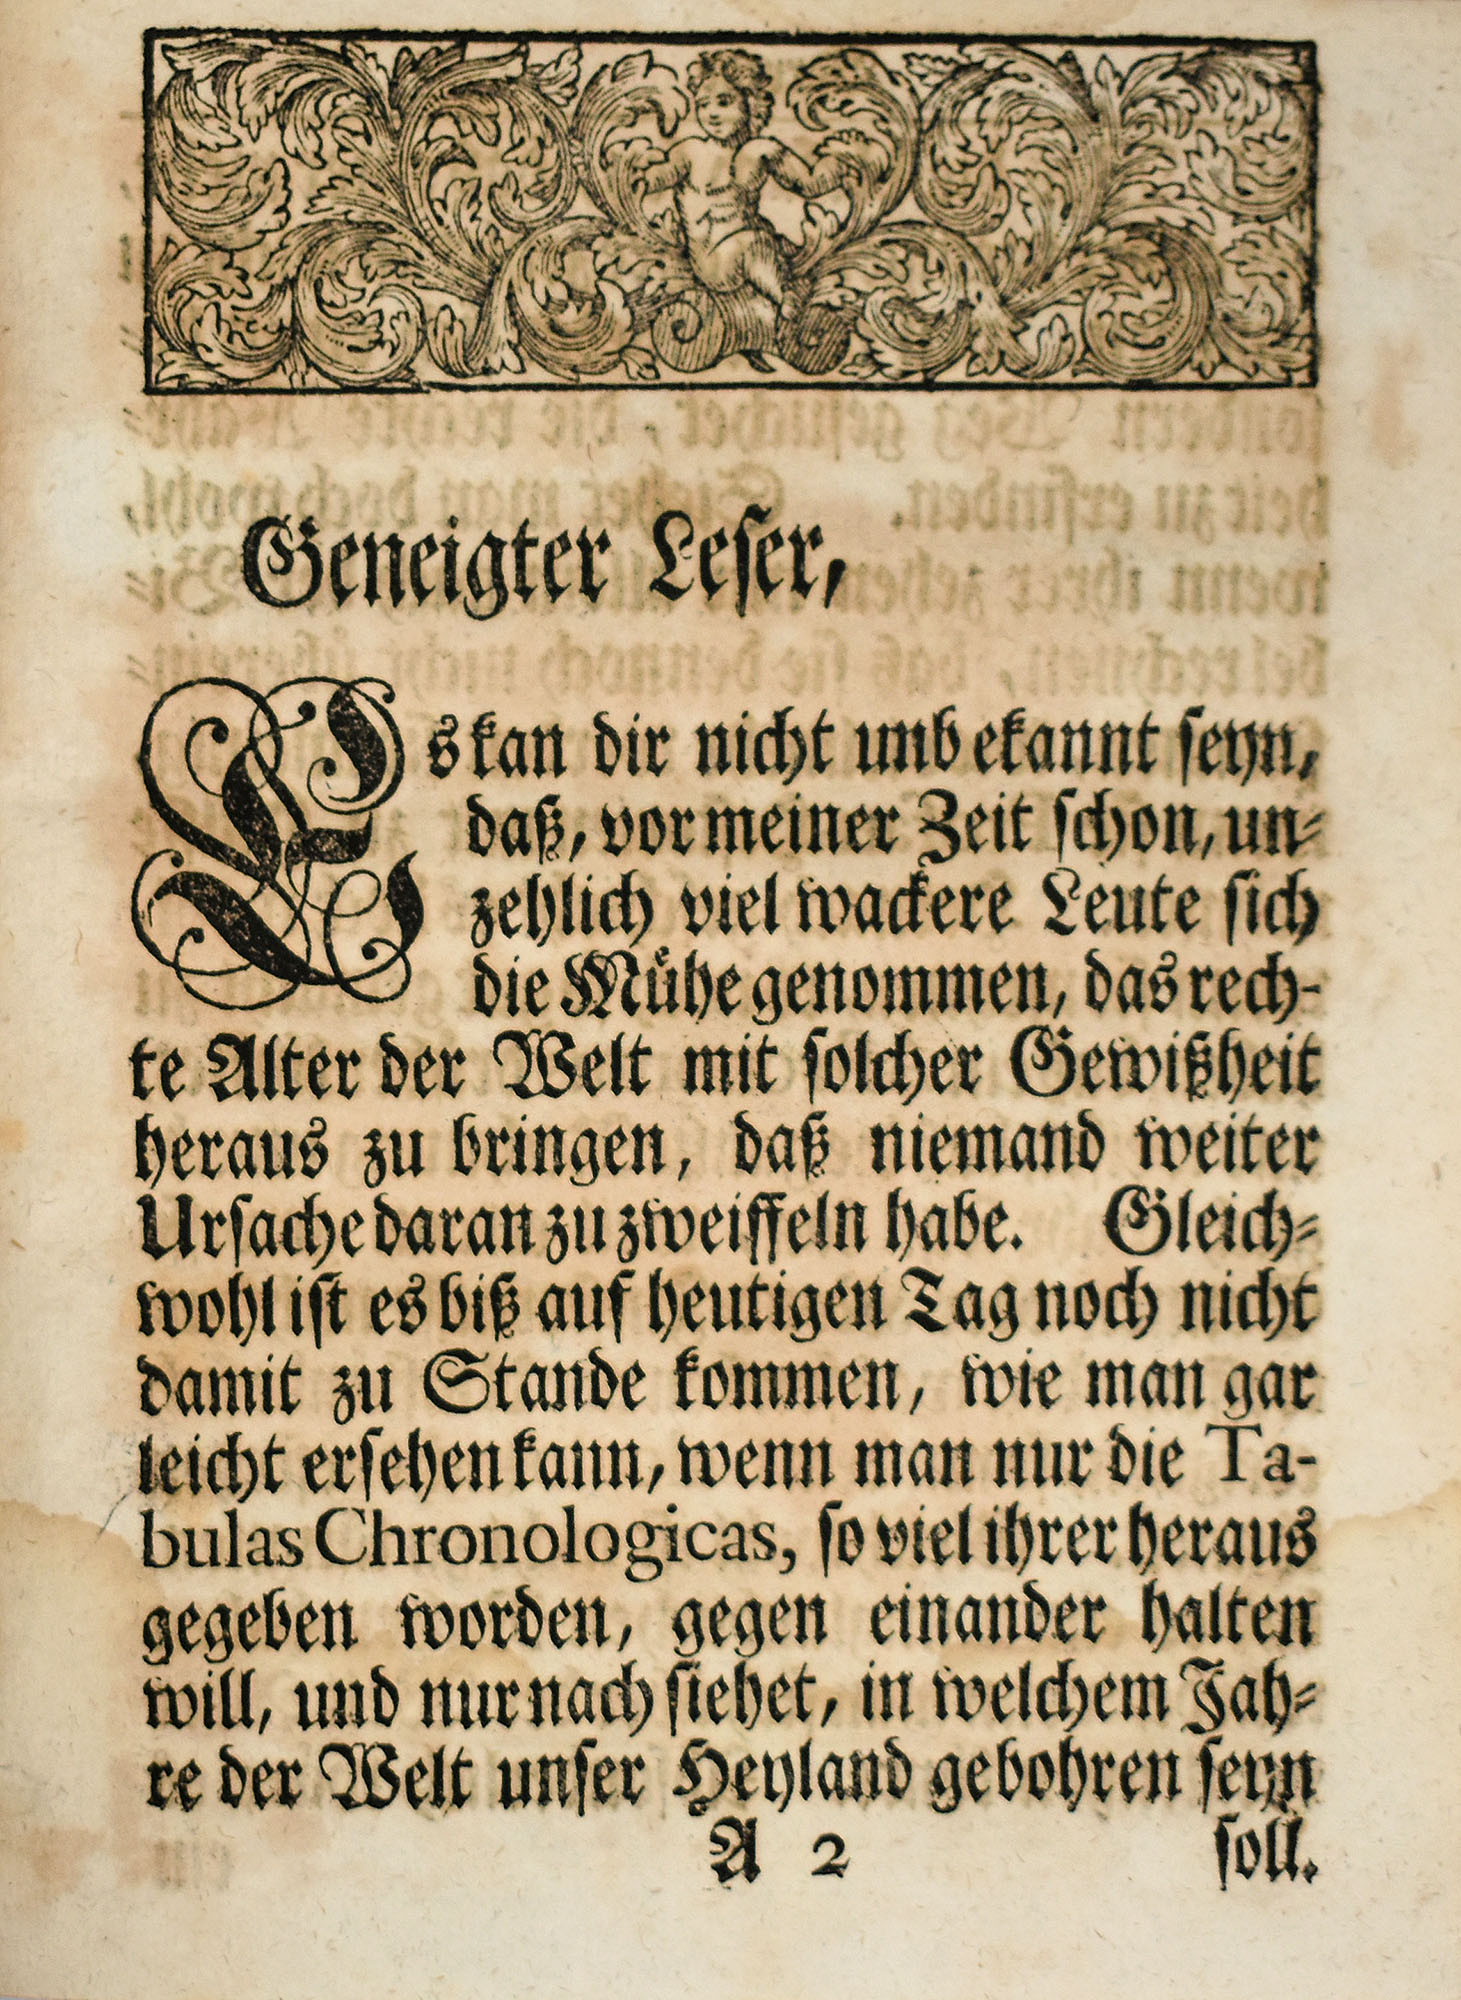 Geneigter Leser,
Es kan dir nicht unbekannt seyn,
daß, vor meiner Zeit schon, un-
zehlich viel wackere Leute sich
die Mühe genommen, das rech-
te Alter der Welt mit solcher Gewißheit
heraus zu bringen, daß niemand weiter
Ursache daran zu zweiffeln habe. Gleich-
wohl ist es biß auf heutigen Tag noch nicht
damit zu Stande kommen, wie man gar
leicht ersehen kann, wenn man nur die Ta-
bulas Chronologicas, so viel ihrer heraus
gegeben worden, gegen einander halten
will, und nur nach siehet, in welchem Jah-
re der Welt unser Heyland gebohren seyn
A 2 soll.